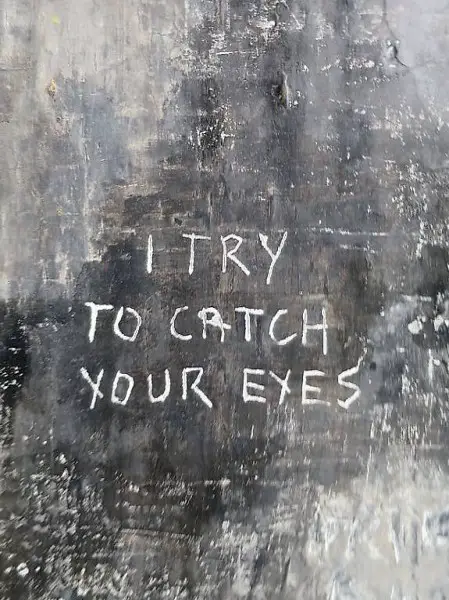 I TRY
TO CATCH
YOUR EYES